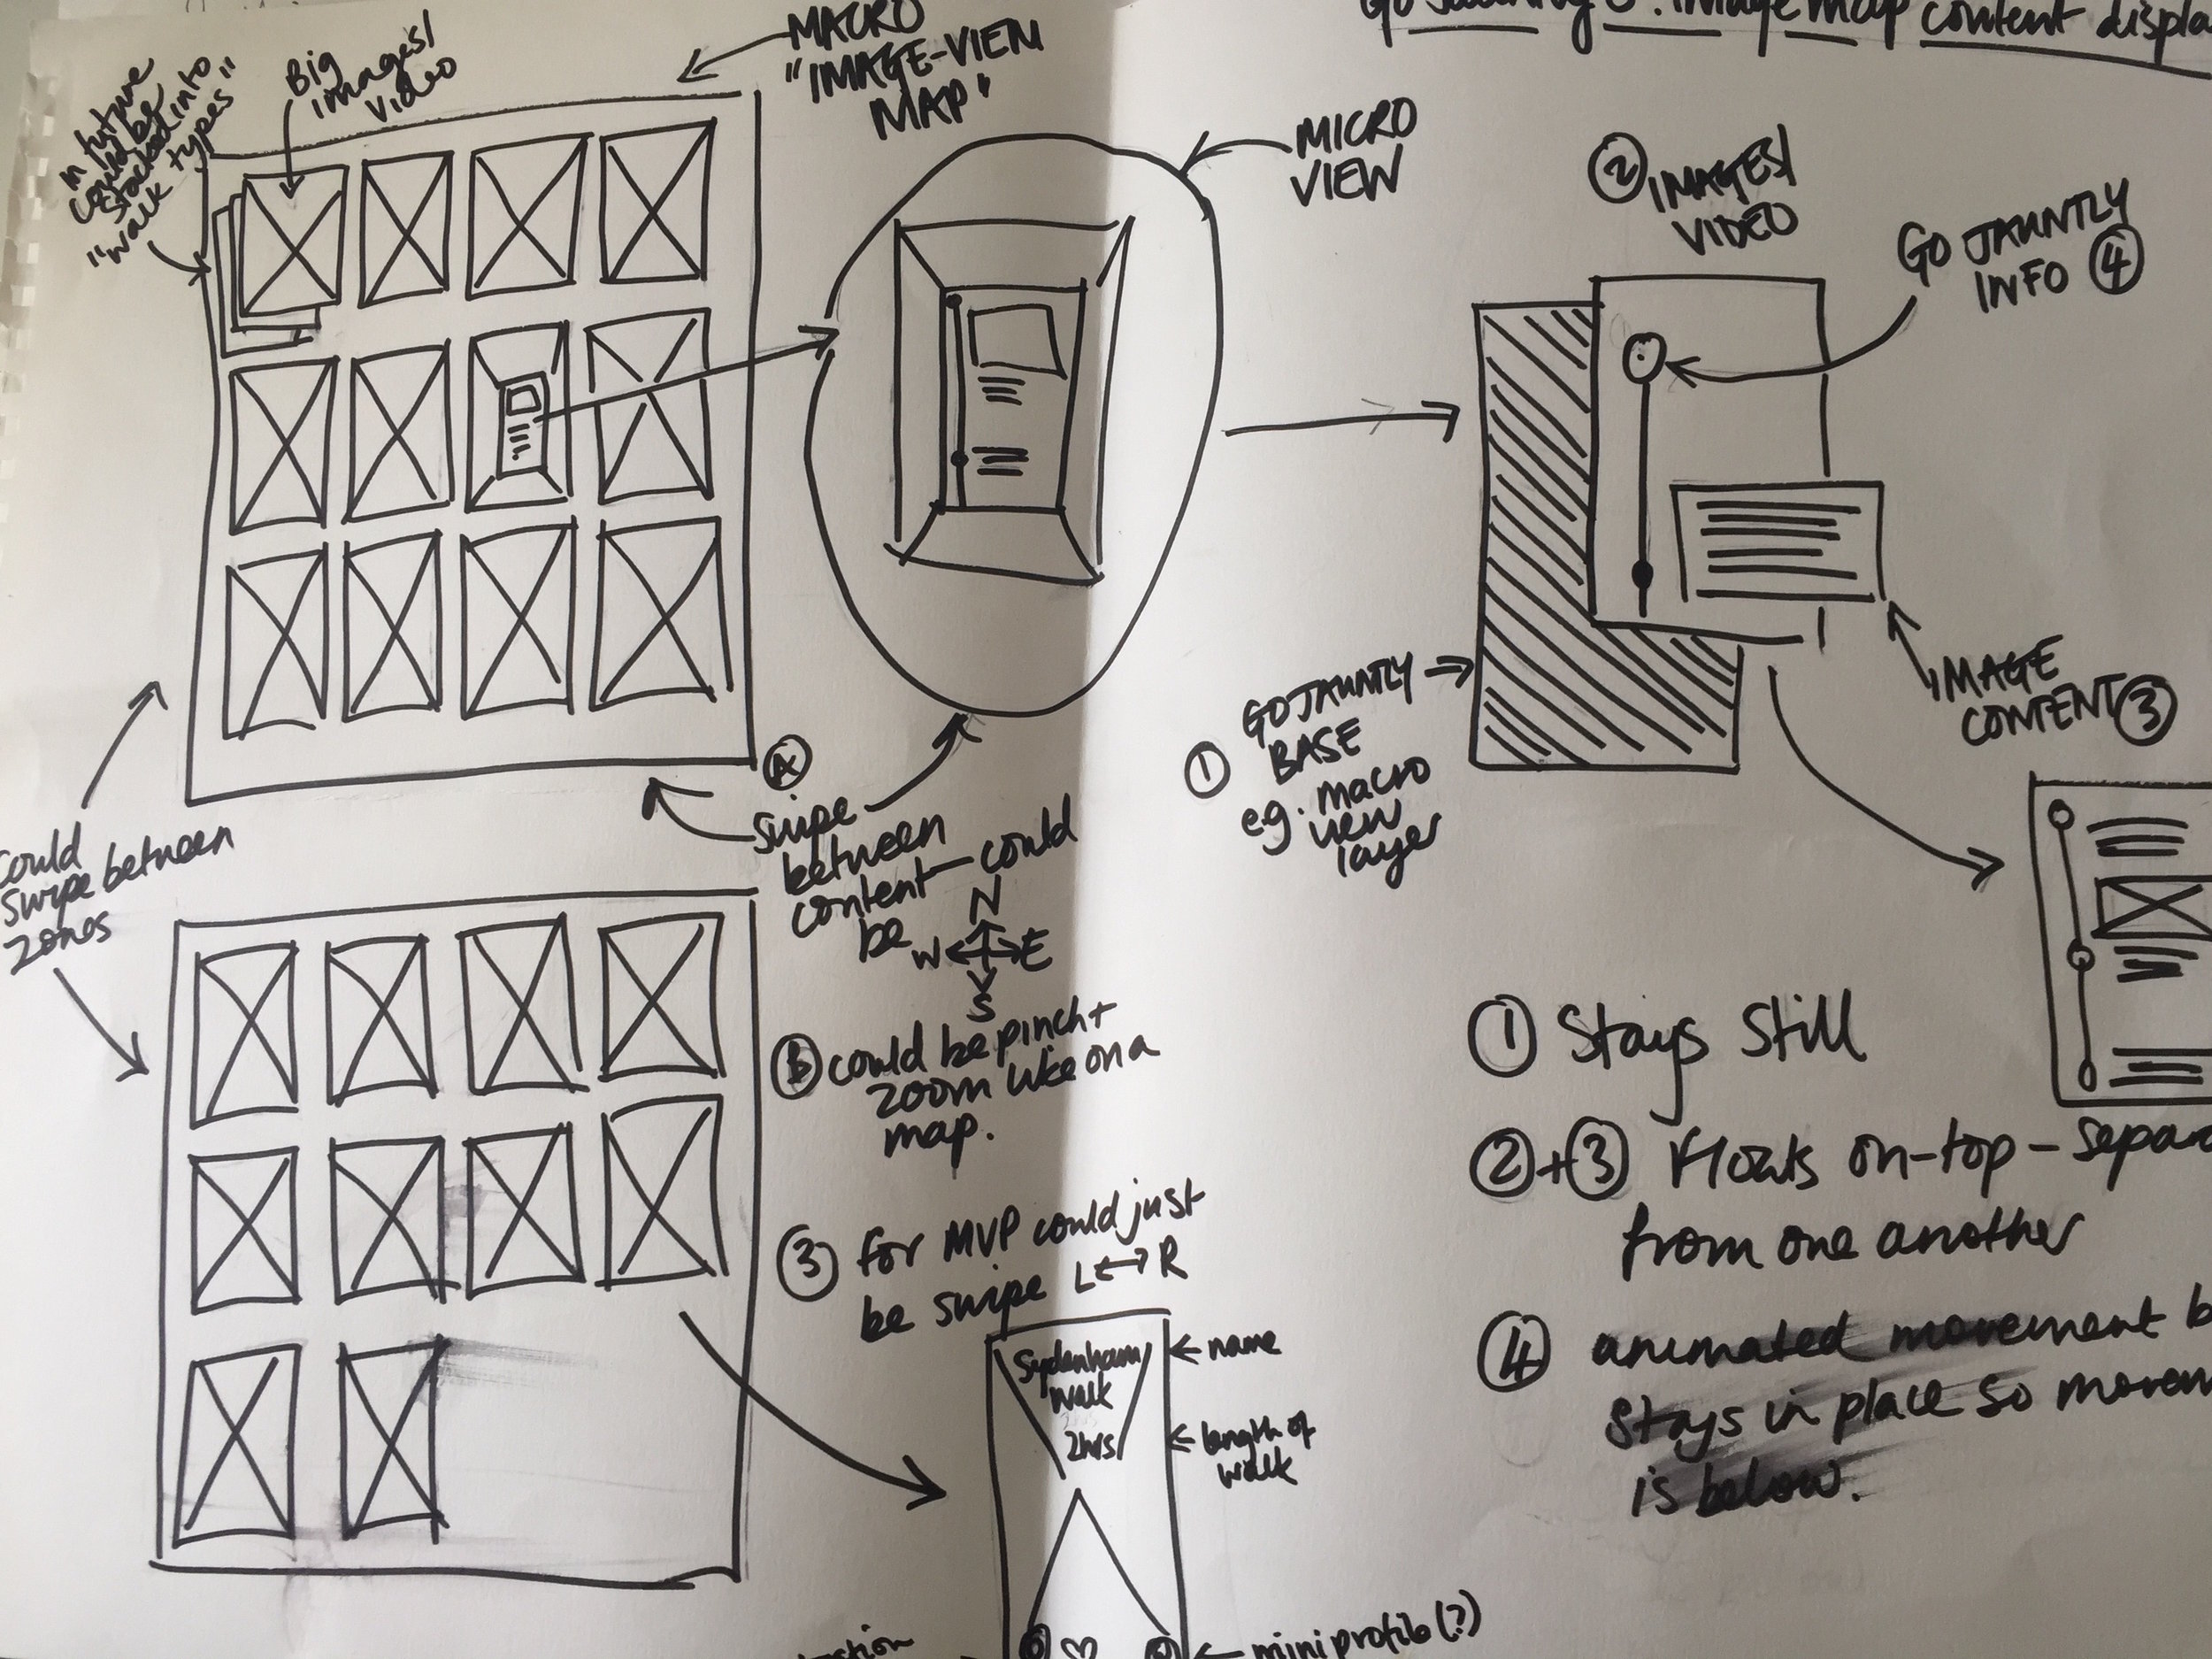 Go Jauntly
image map content displa
MACRO
"IMAGE-VIEW
MAP"
Big
images/
video
in future
could be
stacked into
"walk types"
MICRO
VIEW
② IMAGES/
VIDEO
GO JAUNTLY
INFO ④
① GO JAUNTLY
BASE
e.g. macro
view
layer
IMAGE
CONTENT ③
Could
Swipe between
zones
Ⓐ
Swipe
between
content - could
be
N
W E
S
Ⓑ could be pinch +
zoom like on a
map.
③ for MVP could just
be swipe L R
Sydenham
Walk
2hrs
← name
← length of
walk
← mini profile (?)
① Stays Still
② + ③ Floats on-top - separa
from one another
④ animated movement b
Stays in place so movem
is below.